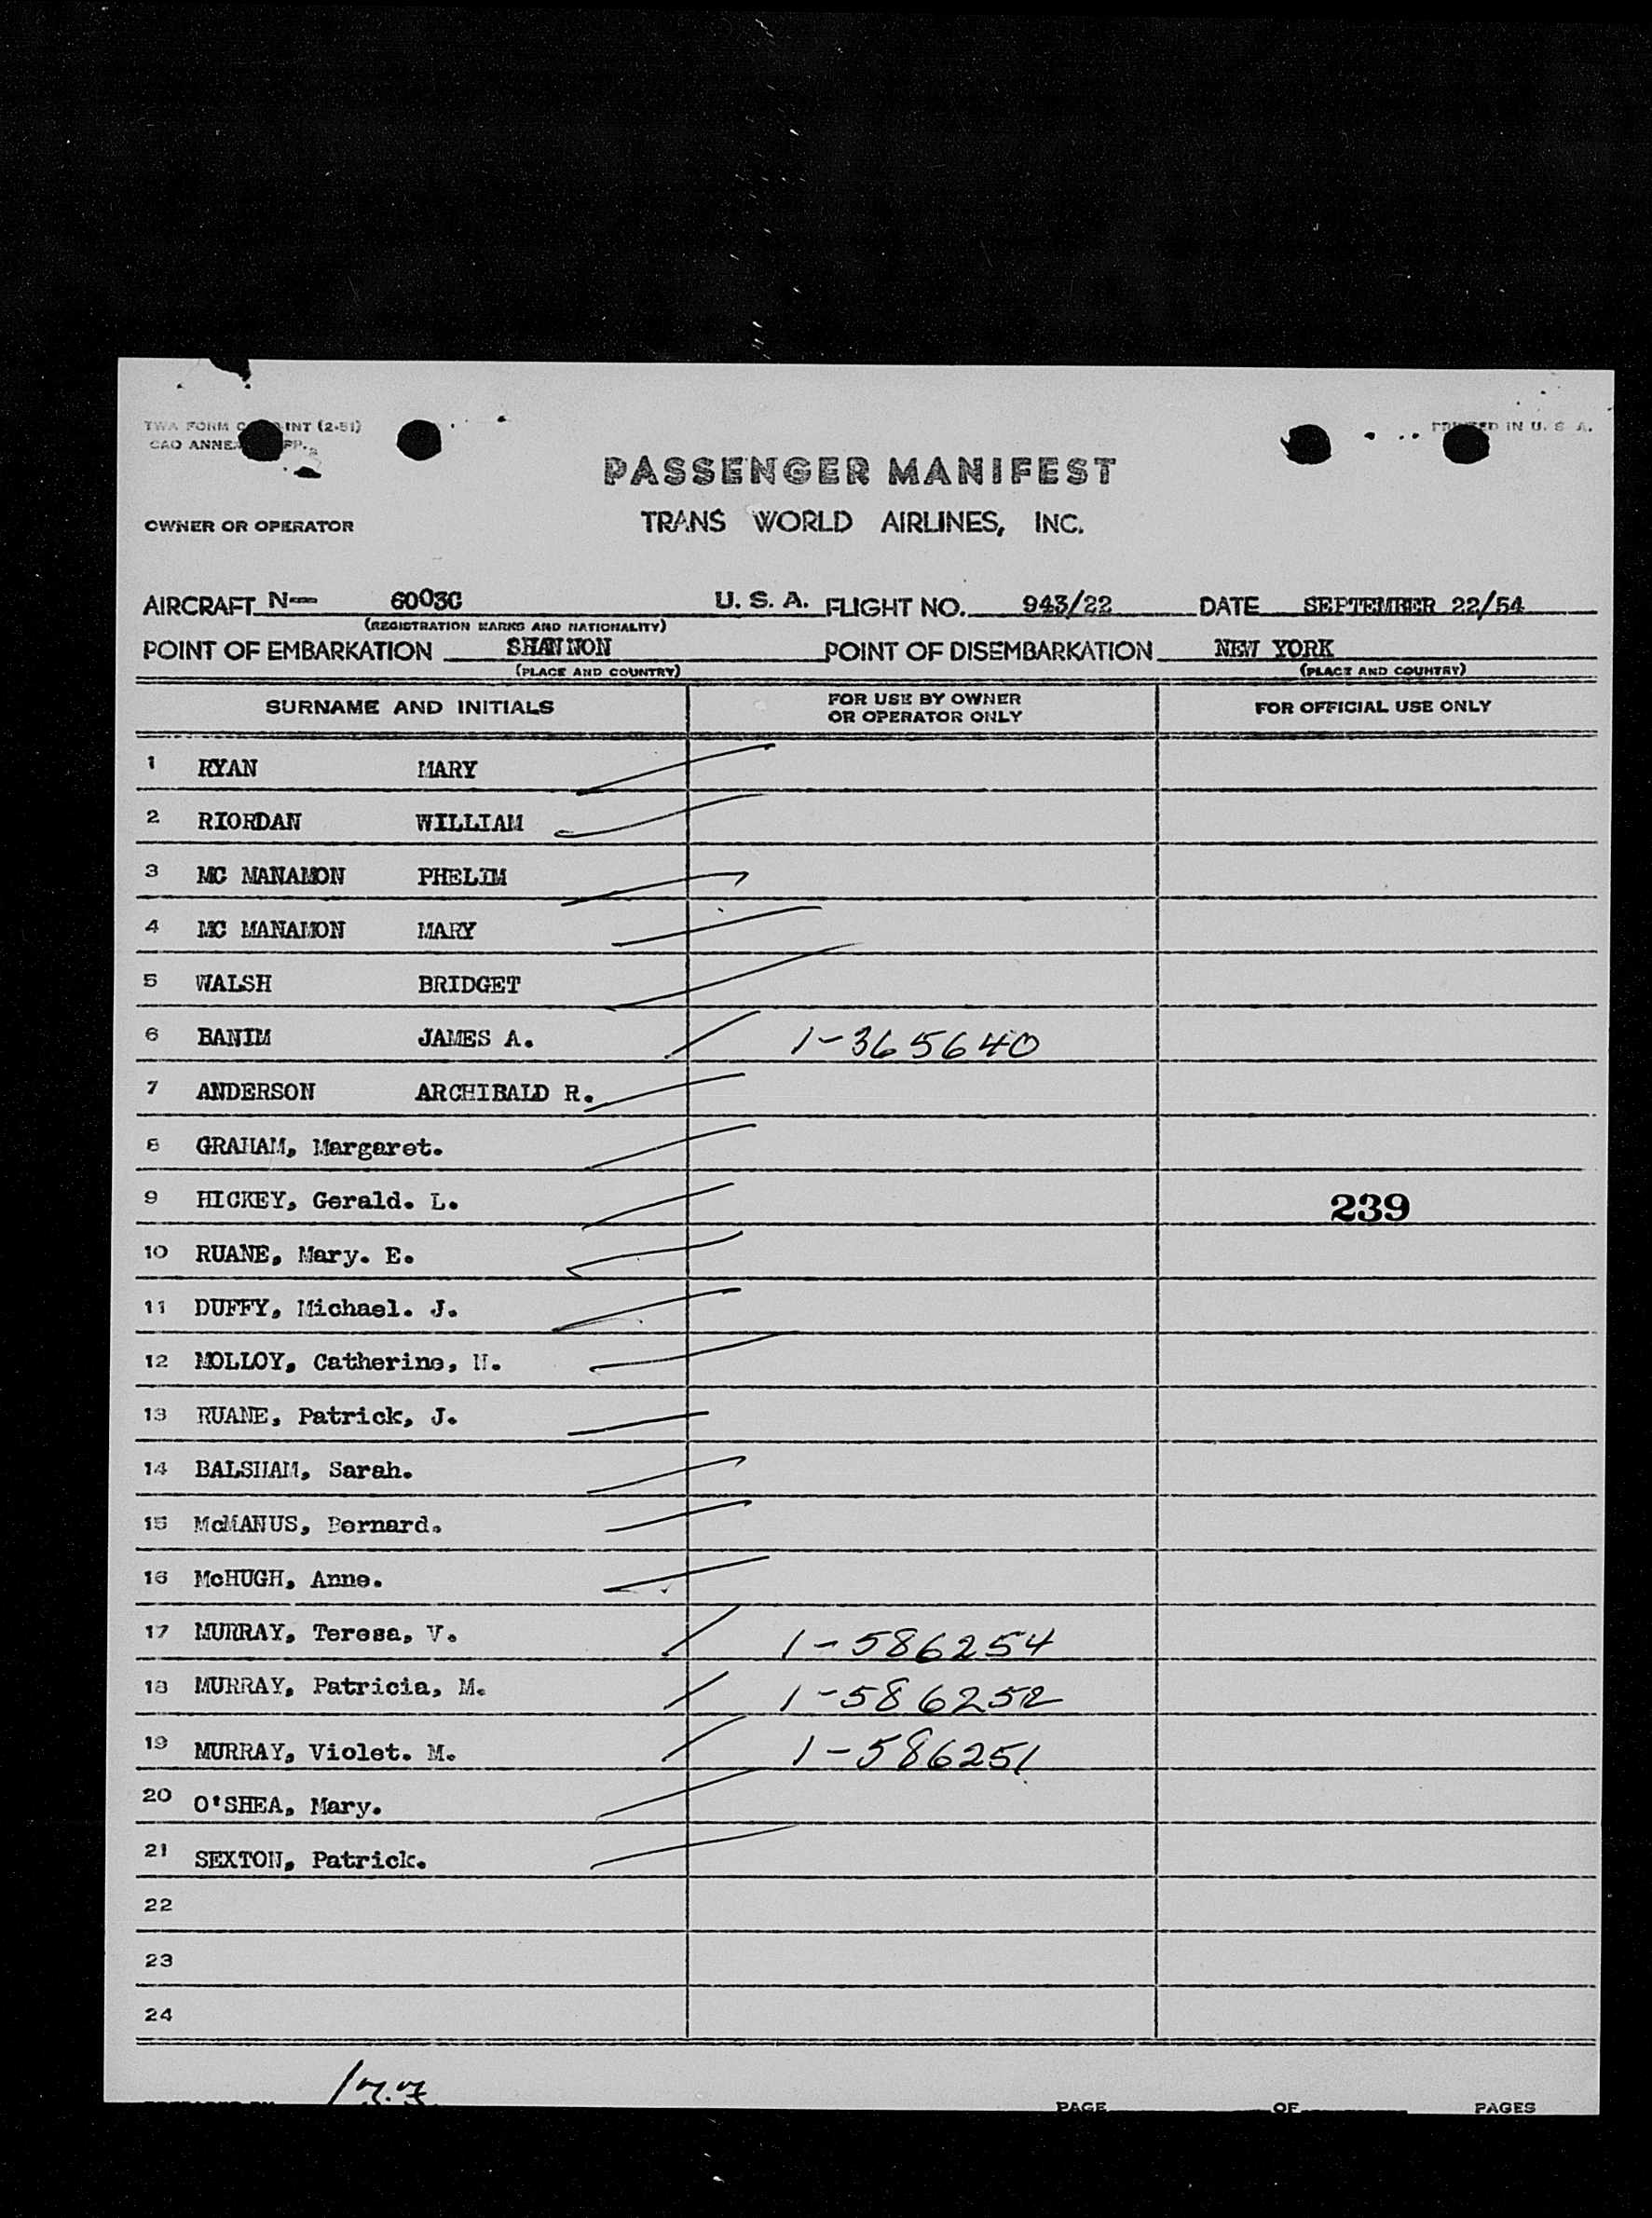 TWA FORM INT (2-51)
PRINTED IN U. S. A.
CAO ANNEX
PASSENGER MANIFEST
OWNER OR OPERATOR
TRANS WORLD AIRLINES, INC.
AIRCRAFT N— 6003C U. S. A. FLIGHT NO. 943/22 DATE SEPTEMBER 22/54
(REGISTRATION MARKS AND NATIONALITY)
POINT OF EMBARKATION SHANNON POINT OF DISEMBARKATION NEW YORK
(PLACE AND COUNTRY) (PLACE AND COUNTRY)
SURNAME AND INITIALS FOR USE BY OWNER OR OPERATOR ONLY FOR OFFICIAL USE ONLY
1 RYAN MARY
2 RIORDAN WILLIAM
3 MC MANAMON PHELIM
4 MC MANAMON MARY
5 WALSH BRIDGET
6 BANIM JAMES A. 1-365640
7 ANDERSON ARCHIBALD R.
8 GRAHAM, Margaret.
9 HICKEY, Gerald. L. 239
10 RUANE, Mary. E.
11 DUFFY, Michael. J.
12 MOLLOY, Catherine,
13 RUANE, Patrick, J.
14 BALSHAM, Sarah.
15 McMANUS, Bernard.
16 McHUGH, Anne.
17 MURRAY, Teresa, V. 1-586254
18 MURRAY, Patricia, M. 1-586252
19 MURRAY, Violet. M. 1-586251
20 O'SHEA, Mary.
21 SEXTON, Patrick.
22
23
24
PAGE OF PAGES